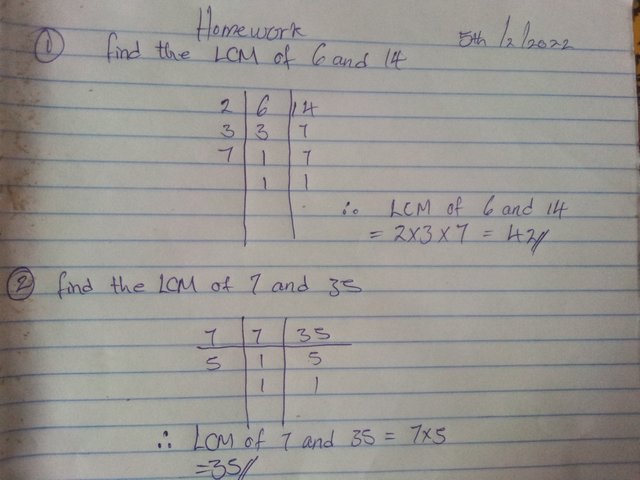 Homework
5th/2/2022
① find the LCM of 6 and 14
2 | 6 | 14
3 | 3 | 7
7 | 1 | 7
| 1 | 1
∴ LCM of 6 and 14
= 2x3x7 = 42//
② find the LCM of 7 and 35
7 | 7 | 35
5 | 1 | 5
| 1 | 1
∴ LCM of 7 and 35 = 7x5
=35//